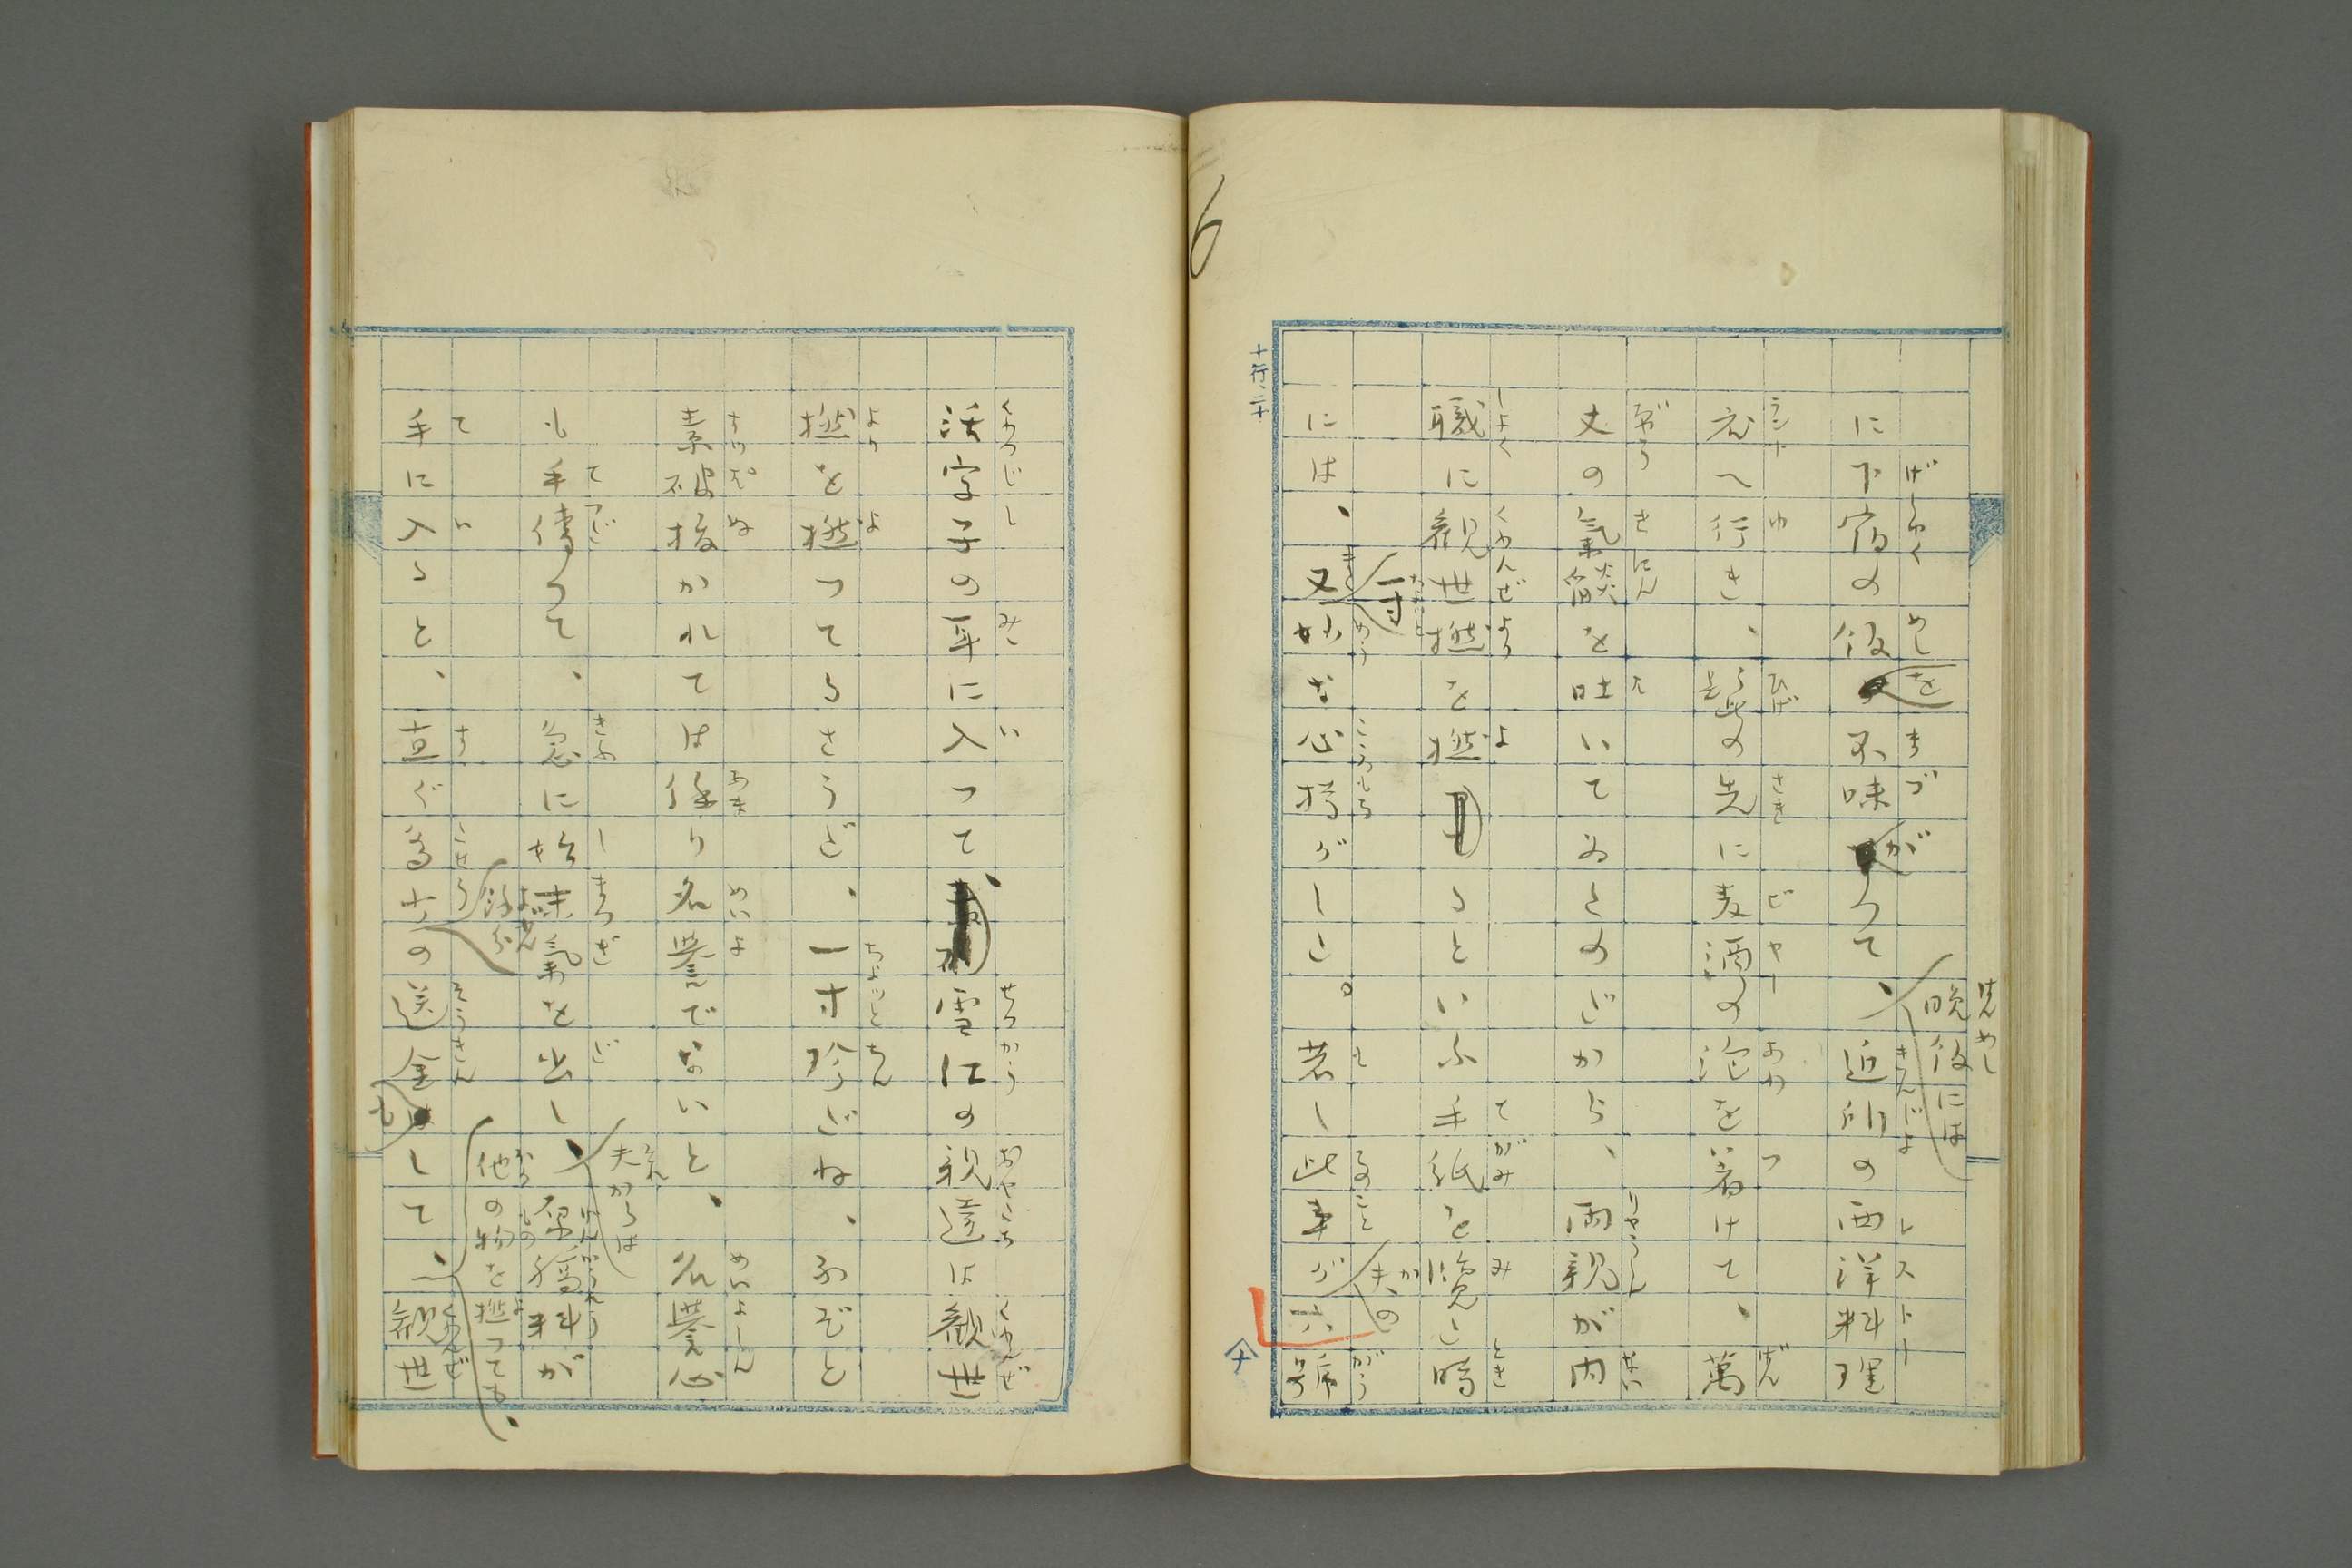 に下宿の飯を不味がつて、晩飯には近所の西洋料理
店へ行き、髭の先に麦酒の泡を着けて、萬
丈の氣燄を吐いてゐたのだから、両親が内
職に観世撚を撚るといふ手紙を覧た時
には、一寸又妙な心持がした。若し此事が夫の六號
活字子の耳に入つて、雪江の親達は観世
撚を撚つてるさうだ、一寸珍だね、なぞと
素破抜かれては余り名誉でないと、名誉心
も手傳つて、急に始末氣を出し、夫からは原稿料が
手に入ると、直ぐ多少の余分の送金もして、他の物を撚つても、観世
十行二十
6